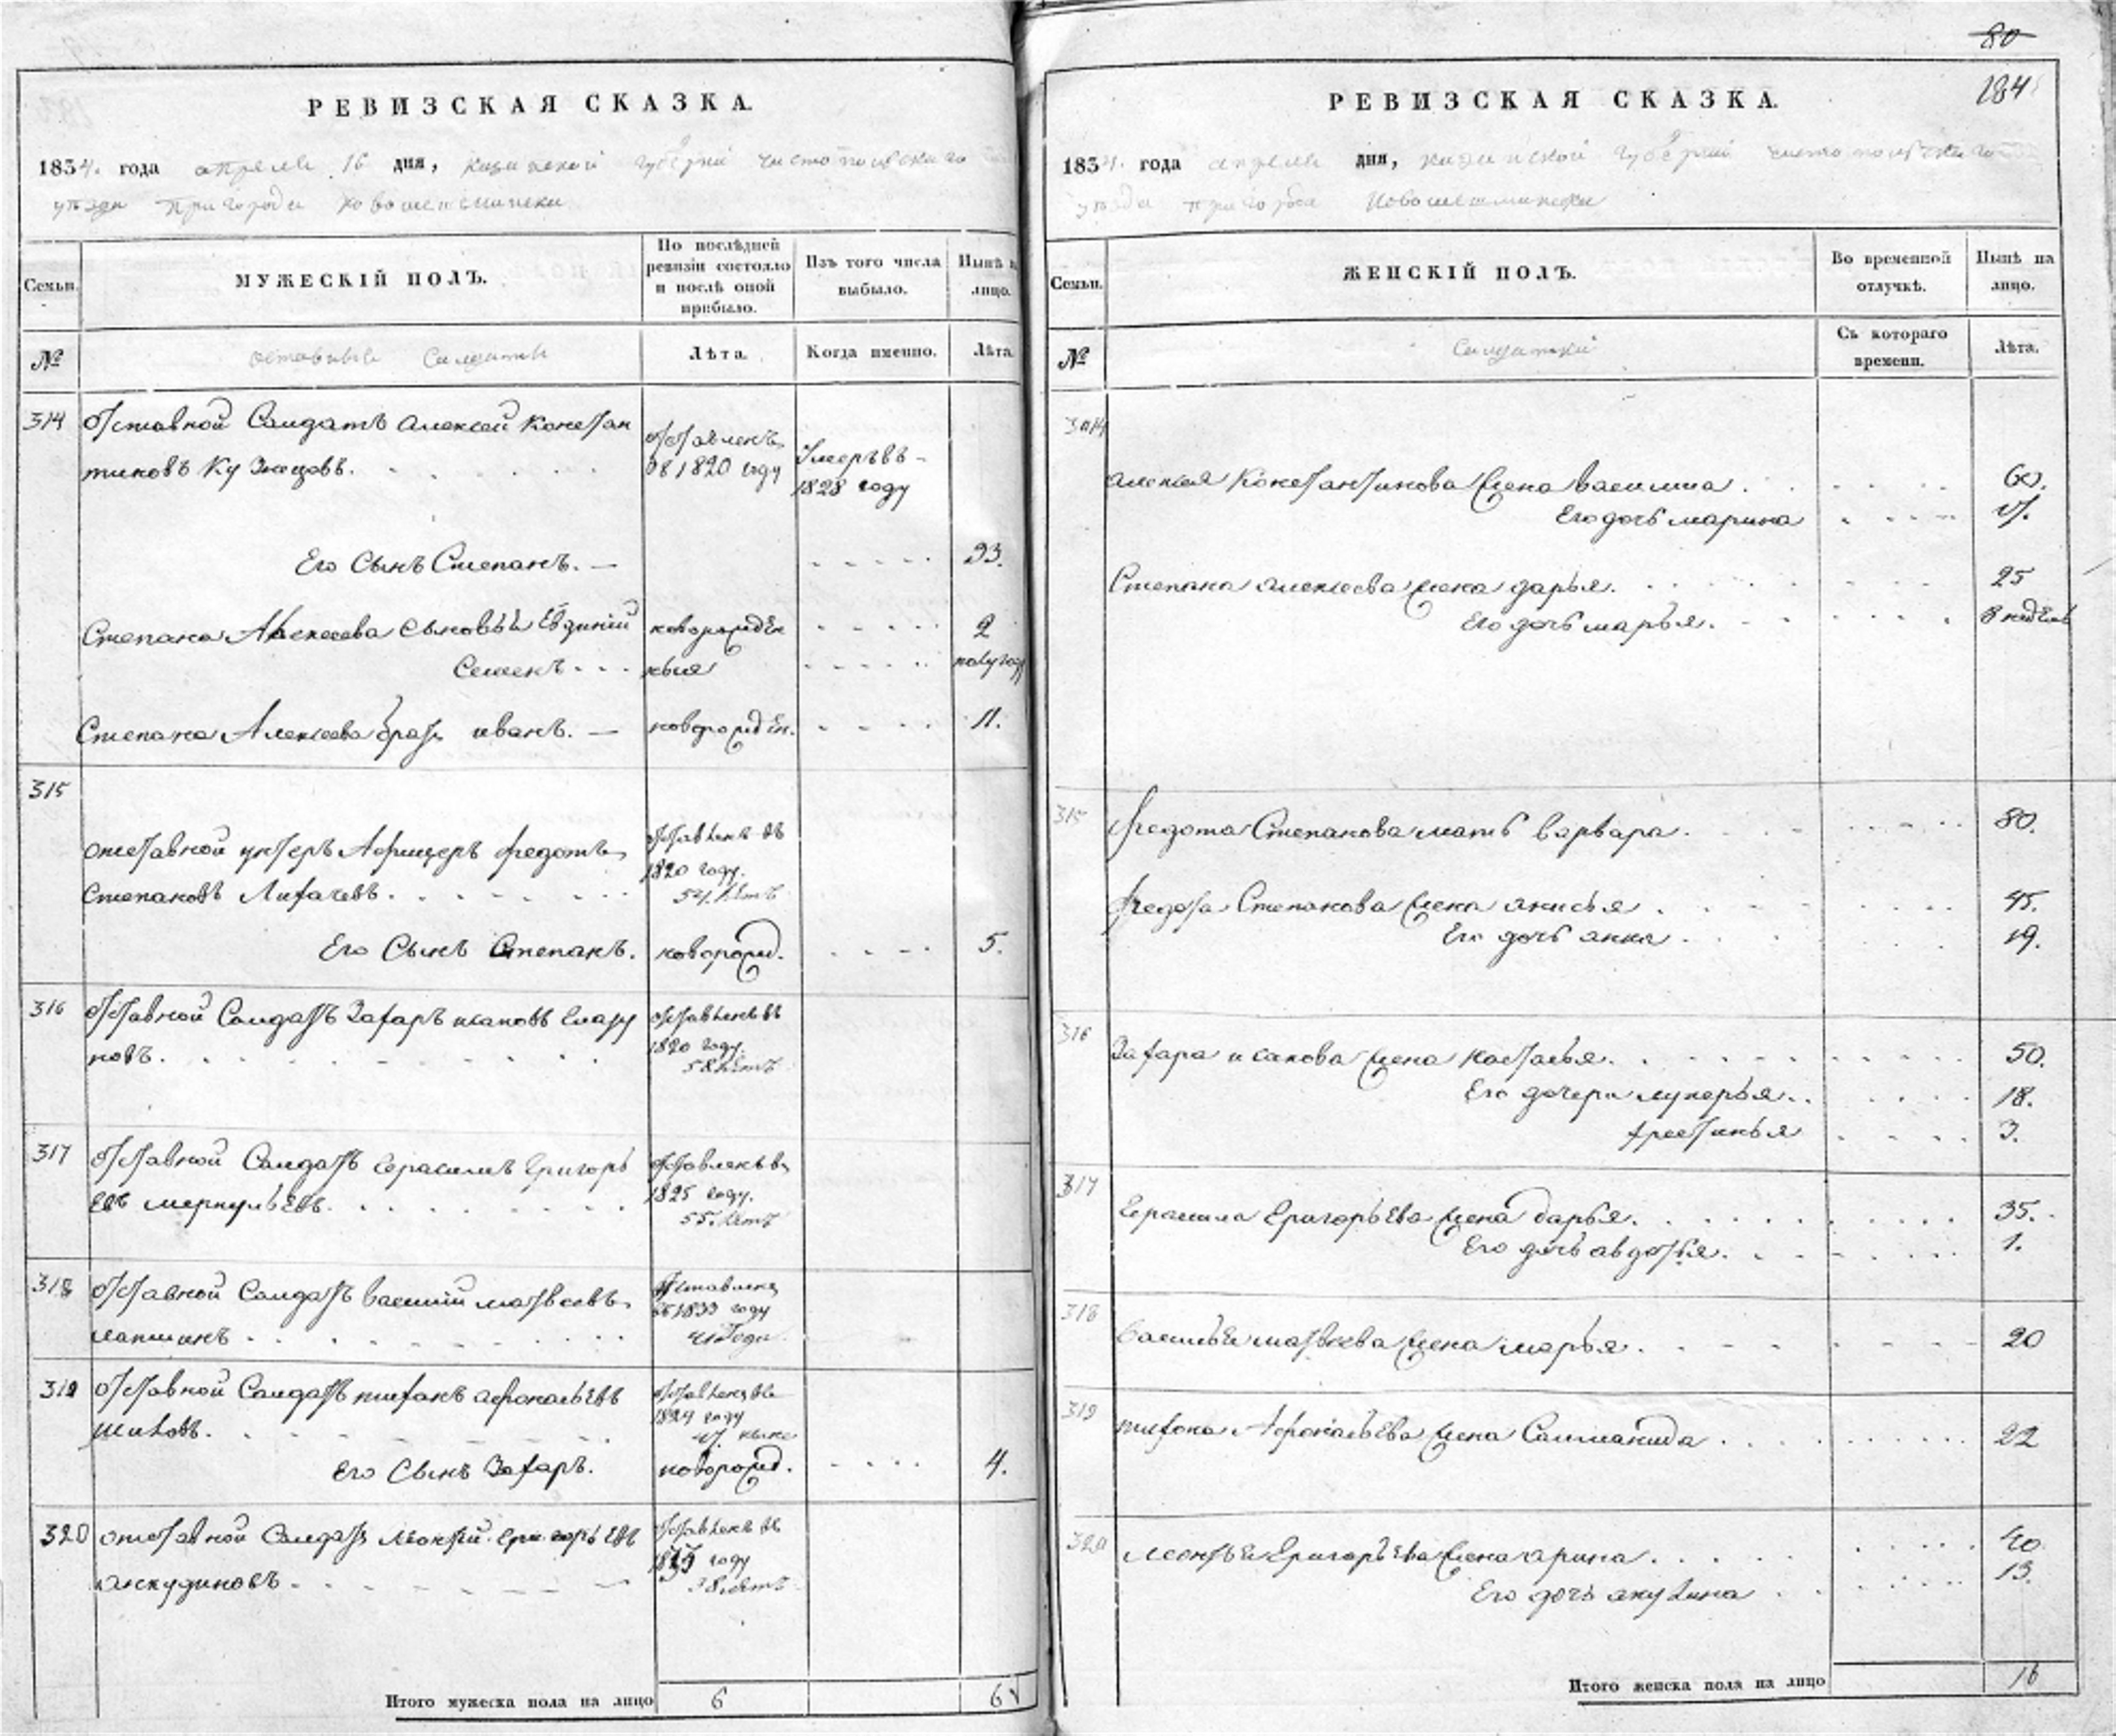 РЕВИЗСКАЯ СКАЗКА.
1834. года апреля 16 дня, казанской губернии чистопольскаго
уезда пригорода новошешминска
Семьи.
МУЖЕСКІЙ ПОЛЪ.
По послѣдней ревизіи состояло и послѣ оной прибыло.
Изъ того числа выбыло.
Нынѣ на лицо.
№
отставные Салдаты
Лѣта.
Когда именно.
Лѣта.
314 отставной Салдатъ Алексей Констан
тиновъ Кузнецовъ.
отставленъ
въ 1820 году
Умеръ въ
1828 году
Его Сынъ Степанъ. — 33.
Степана Алексеева сыновья новорожден 2
Семенъ ныя полугоду
Степана Алексеева братъ иванъ. — новорожден. 11.
315
отставной унтеръ Афицеръ Федотъ
Степановъ Лихачевъ.
отставленъ въ
1820 году.
54. летъ
Его Сынъ Степанъ. новорожд. 5.
316 отставной Салдатъ Захаръ исаковъ
новъ.
отставленъ въ
1820 году.
58 летъ
317 отставной Салдатъ Герасимъ Григорь
евъ меркульевъ.
отставленъ въ
1825 году.
55. летъ
318 отставной Салдатъ василий матвеевъ
лапшинъ
отставленъ
въ 1833 году
319 отставной Салдатъ
отставленъ въ
1829 году
Его Сынъ Захаръ. новорожд. 4.
320 отставной Салдатъ Леонтий Григорьевъ
анкудиновъ
отставленъ въ
году
38 летъ
Итого мужеска пола на лицо 6 6
80
184
РЕВИЗСКАЯ СКАЗКА.
1834. года апреля дня, казанской губернии чистопольскаго
уезда пригорода Новошешминска
Семьи.
ЖЕНСКІЙ ПОЛЪ.
Во временной отлучкѣ.
Нынѣ на лицо.
№
Салдатки
Съ котораго времени.
Лѣта.
314
алексея Константинова жена васи­лиса 60.
Его дочь марина 17.
Степана алексеева жена дарья. 25
Его дочь марья. 8 недель
315 Федота Степанова мать варвара. 80.
Федота Степанова жена анисья 45.
Его дочь анна 19.
316
Захара исакова жена настасья. 50.
Его дочери лукерья. 18.
хрестинья 3.
317
Герасима Григорьева жена дарья. 35.
Его дочь авдотья. 1.
318
васильи матвеева жена марья. 20
319
жена Саламанида 22
320
леонтьи Григорьева жена арина 40
Его дочь акулина 13.
Итого женска пола на лицо 16